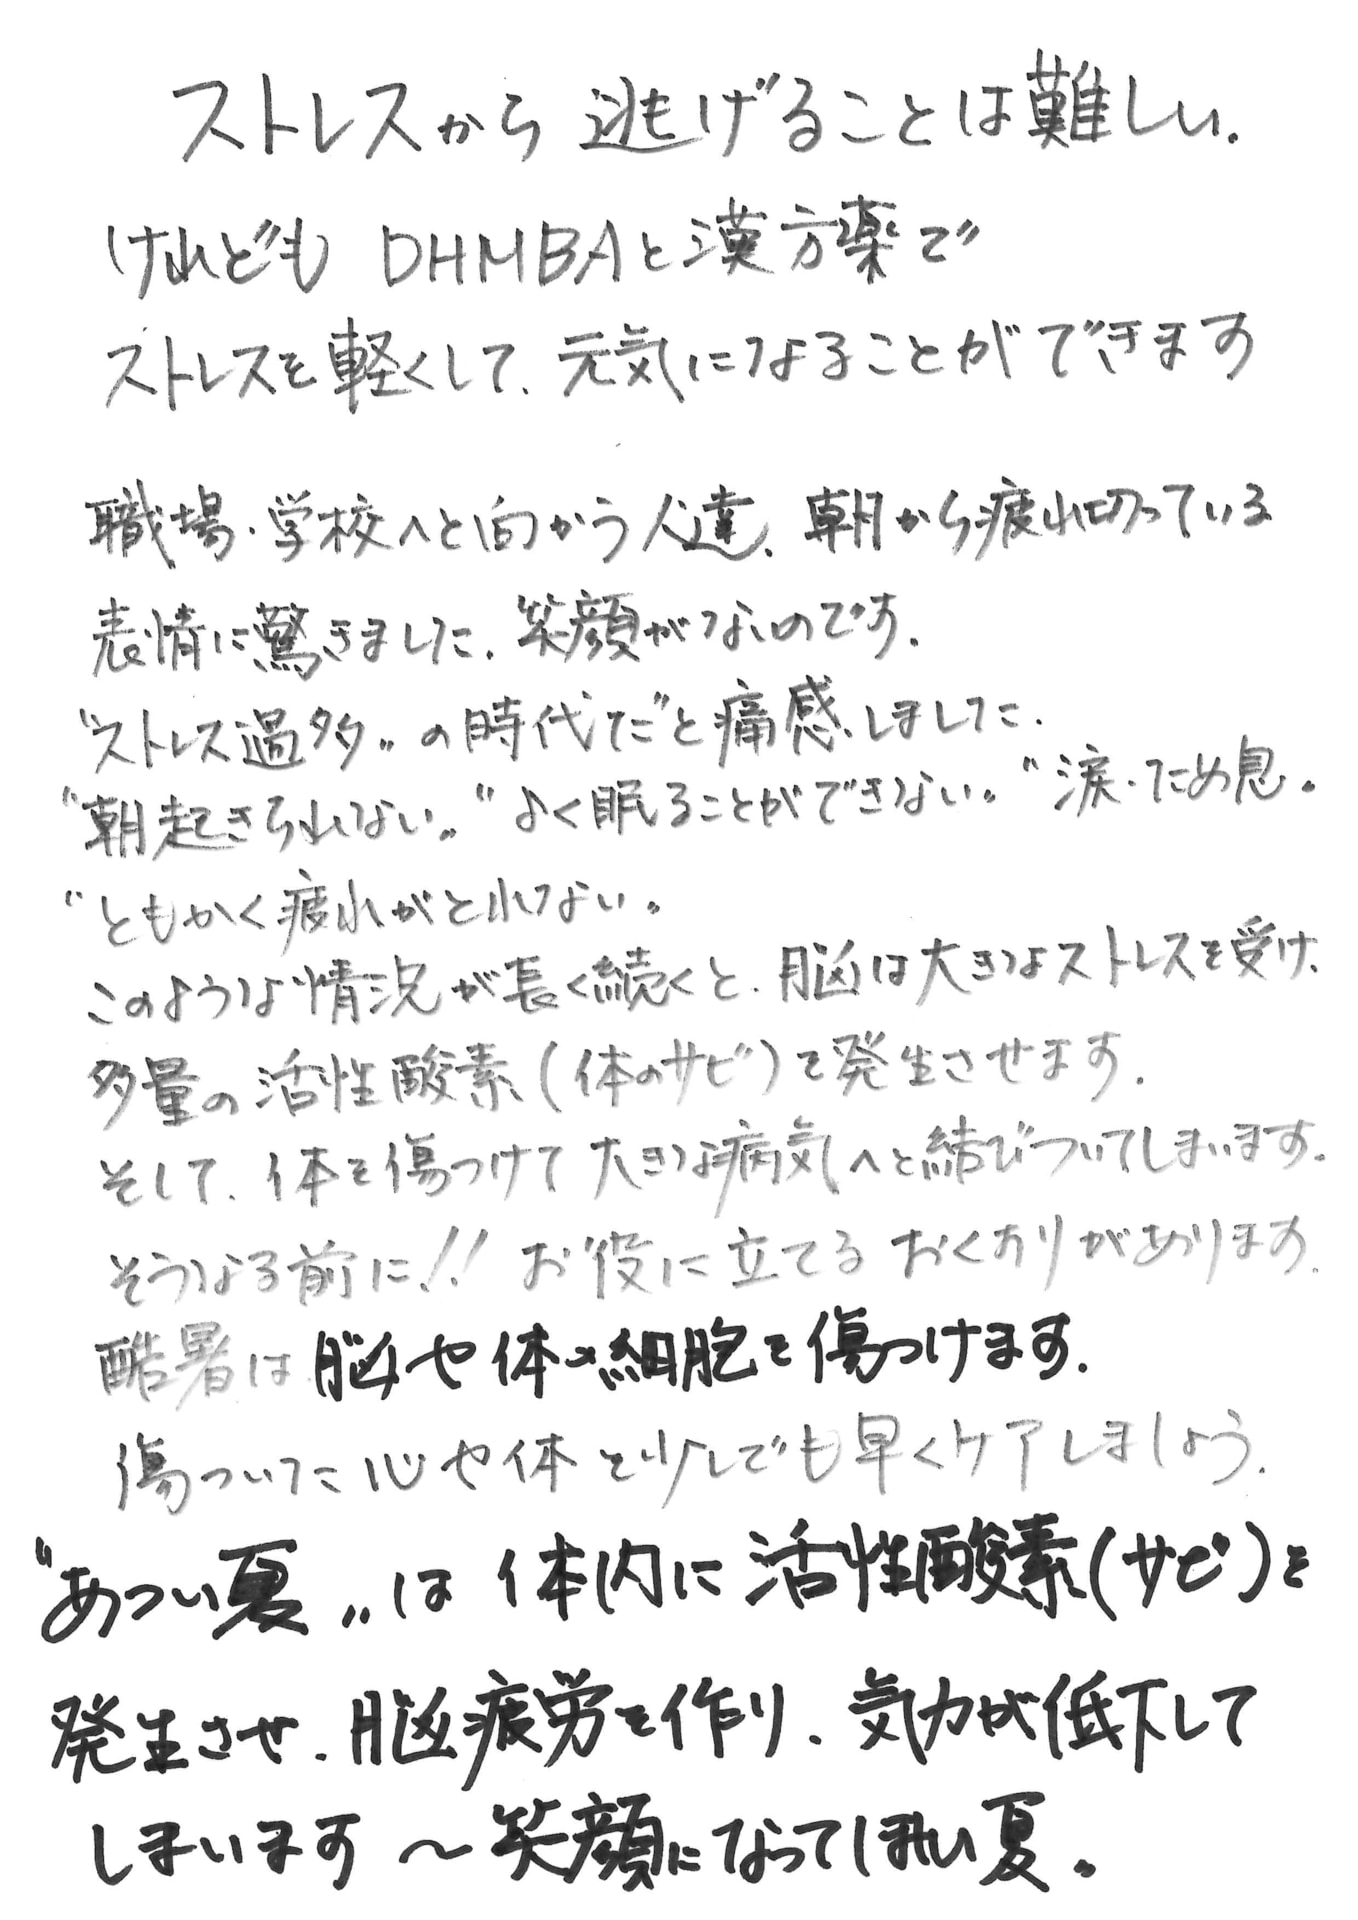 ストレスから逃げることは難しい.
けれども DHMBAと漢方薬で
ストレスを軽くして、元気になることができます
職場・学校へと向かう人達、朝から疲れ切っている
表情に驚きました、笑顔がないのです.
"ストレス過多〟の時代だと痛感しました.
"朝起きられない〟"よく眠ることができない〟"涙・ため息〟
"ともかく疲れがとれない〟
このような情況が長く続くと、脳は大きなストレスを受け、
多量の活性酸素(体のサビ)を発生させます.
そして、体を傷つけて大きな病気へと結びついてしまいます.
そうなる前に!! お役に立てるおくすりがあります.
酷暑は脳や体の細胞を傷つけます.
傷ついた心や体を少しでも早くケアしましょう.
"あつい夏〟は体内に活性酸素(サビ)を
発生させ、脳疲労を作り、気力が低下して
しまいます〜笑顔になってほしい夏〟